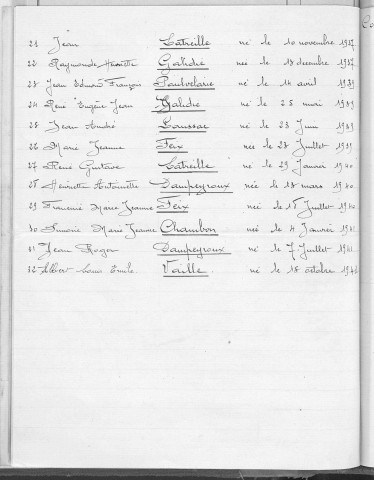 21 Jean Latreille né le 10 novembre 1937
22 Raymonde Henriette Galidre née le 18 decembre 1937
23 Jean Edmond François né le 14 avril 1939
24 René Eugène Jean Galidre né le 25 mai 1939
25 Jean André Loussac né le 23 Juin 1939
26 Marie Jeanne Feix née le 28 Juillet 1939
27 René Gustave Latreille né le 29 Janvier 1940
28 Henriette Antoinette Dampeyroux née le 18 mars 1940
29 Marie Jeanne Feix née le 15 Juillet 1940
30 Simone Marie Jeanne Chambon née le 4 Janvier 1941
31 Jean Roger Dampeyroux né le 7 Juillet 1941
32 Albert Louis Emile. Vaille né le 18 octobre